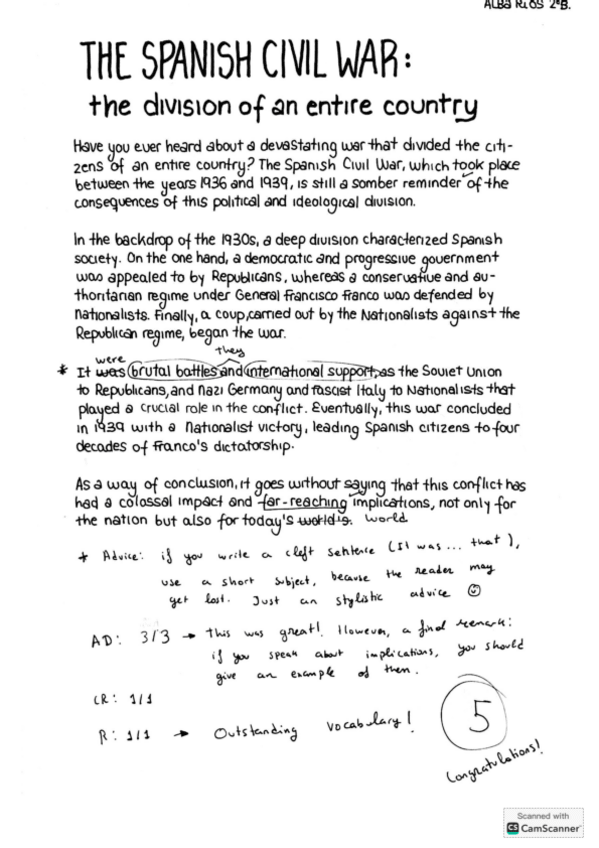 ALBA RIOS 2ºB.
THE SPANISH CIVIL WAR:
the division of an entire country
Have you ever heard about a devastating war that divided the citi-
zens of an entire country? The Spanish Civil War, which took place
between the years 1936 and 1939, is still a somber reminder of the
consequences of this political and ideological division.
In the backdrop of the 1930s, a deep division characterized Spanish
society. On the one hand, a democratic and progressive government
was appealed to by Republicans, whereas a conservative and au-
thoritarian regime under General Francisco Franco was defended by
Nationalists. Finally, a coup, carried out by the Nationalists against the
Republican regime, began the war.
were they
* It was brutal battles and international support, as the Soviet Union
to Republicans, and Nazi Germany and fascist Italy to Nationalists that
played a crucial role in the conflict. Eventually, this war concluded
in 1939 with a Nationalist victory, leading Spanish citizens to four
decades of Franco's dictatorship.
As a way of conclusion, it goes without saying that this conflict has
had a colossal impact and far-reaching implications, not only for
the nation but also for today's world's. world
* Advice: if you write a cleft sentence (It was ... that),
use a short subject, because the reader may
get lost. Just an stylistic advice ☺
AD: 3/3 → This was great!. However, a final remark:
if you speak about implications, you should
give an example of them.
CR: 1/1
R: 1/1 → Outstanding vocabulary!
5
Congratulations!
Scanned with
CS CamScanner